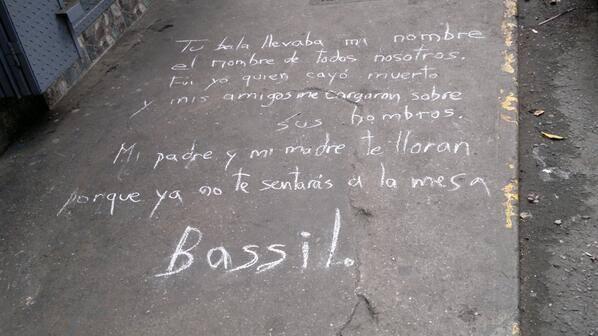 Tu bala llevaba mi nombre
el nombre de todos nosotros.
Fui yo quien cayó muerto
y mis amigos me cargaron sobre
sus hombros.
Mi padre y mi madre te lloran
porque ya no te sentarás a la mesa
Bassil.